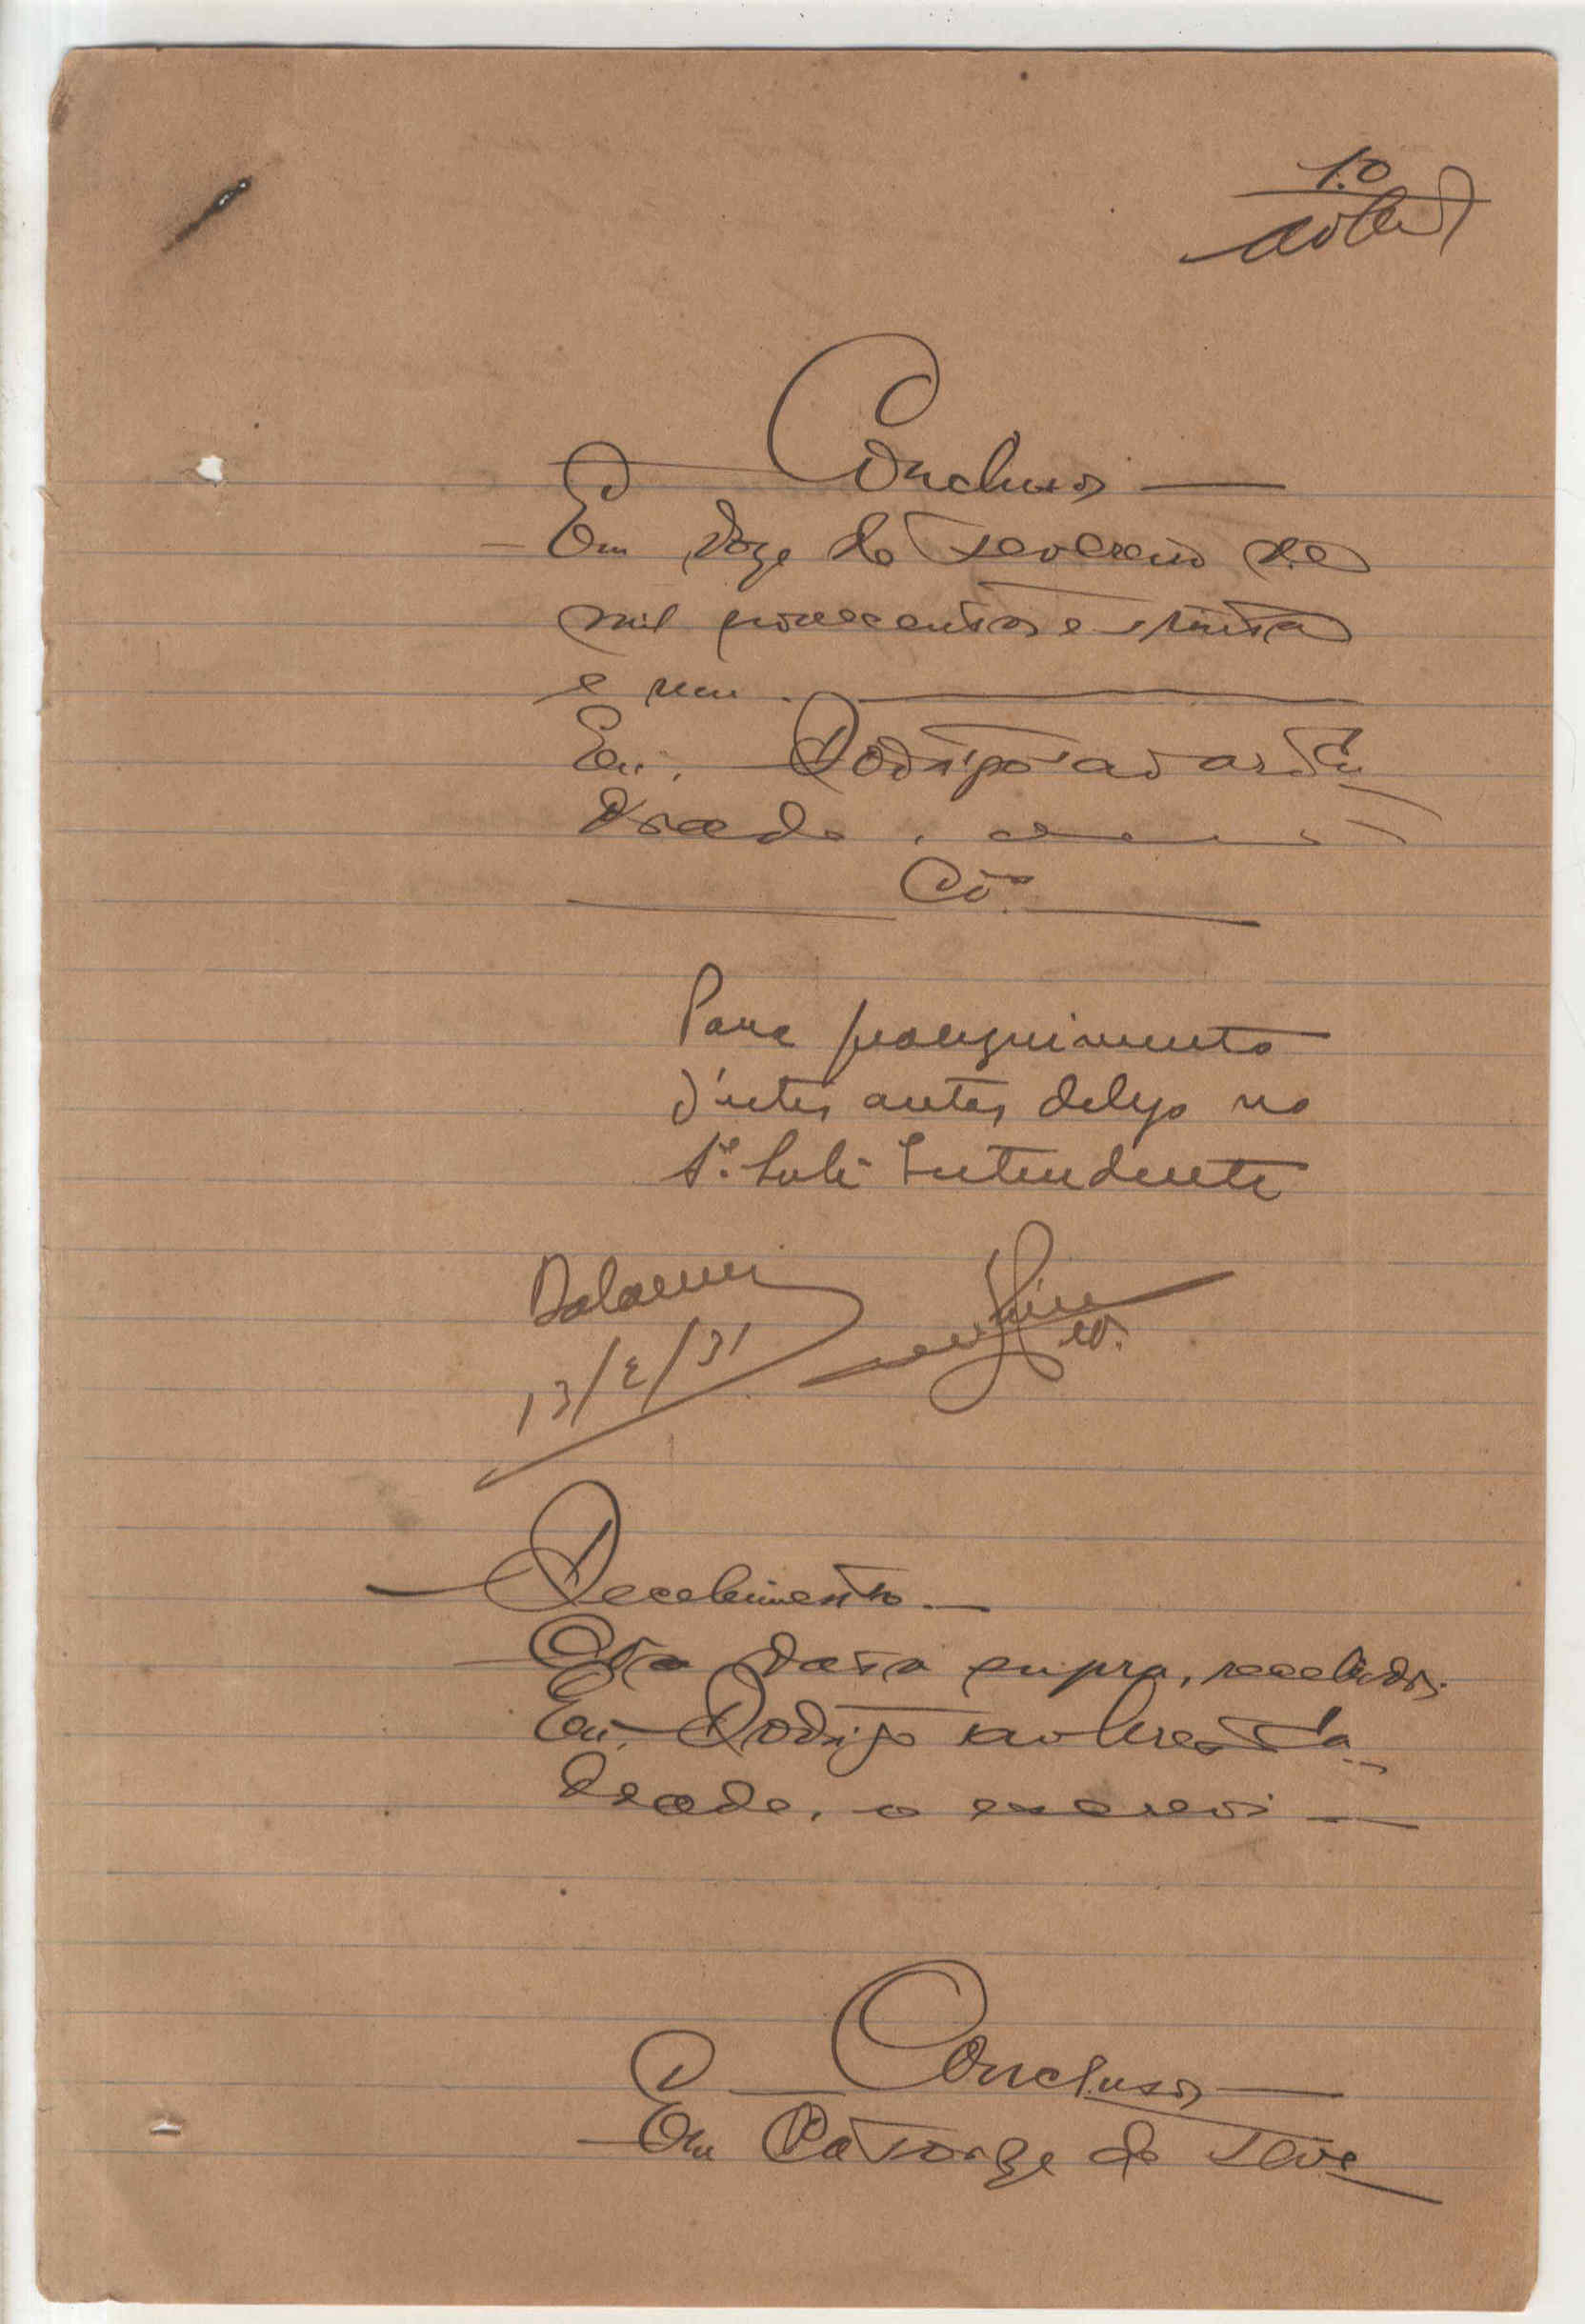 10
Conclusos
Em doze de Fevereiro de
mil novecentos e trinta
e um.
Eu, Rodrigo
drade,
Cõ
Para proseguimento
d'estes autos delego no
Sr. Sub-Intendente
13/2/31
Recebimento
data supra, recebidos.
Eu, Rodrigo
drade, o escrevi
Conclusos
Em Catorze de Feve